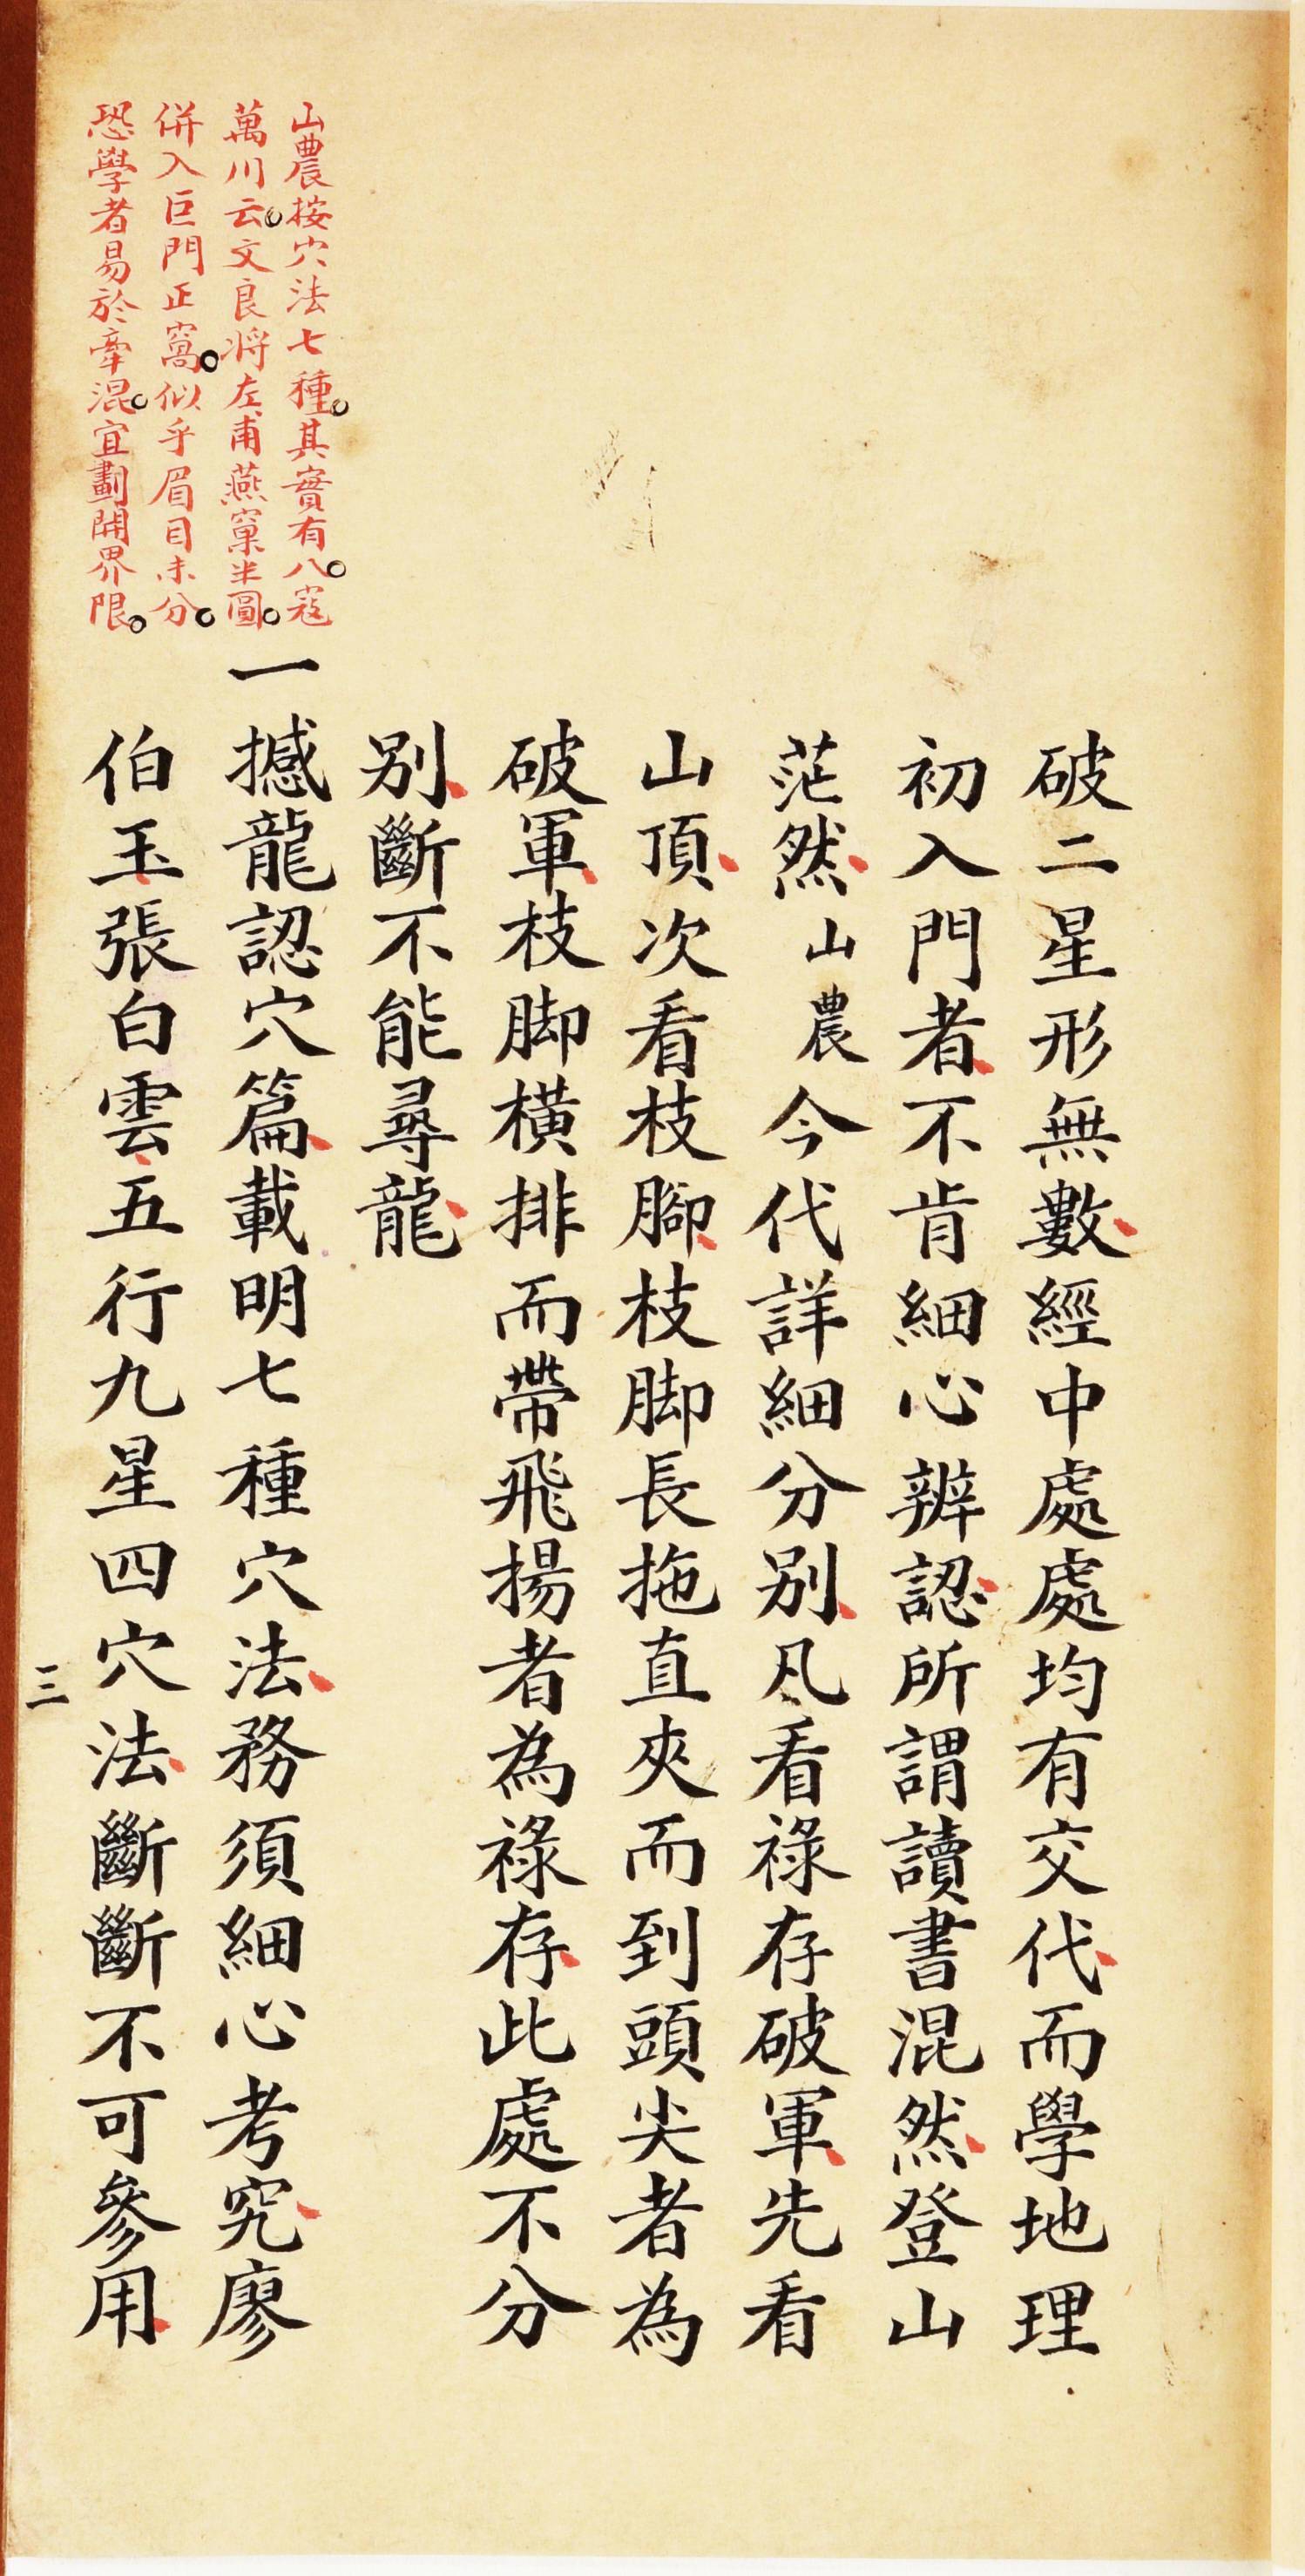 破二星形無數經中處處均有交代而學地理
初入門者不肯細心辨認所謂讀書混然登山
茫然山農今代詳細分別凡看祿存破軍先看
山頂次看枝腳枝脚長拖直夾而到頭尖者為
破軍枝脚橫排而帶飛揚者為祿存此處不分
別斷不能尋龍
一撼龍認穴篇載明七種穴法務須細心考究廖
伯玉張白雲五行九星四穴法斷斷不可參用
山農按穴法七種其實有八寇
萬川云文良將左甫燕窠半圓
併入巨門正窩似乎眉目未分
恐學者易於牽混宜劃開界限
三